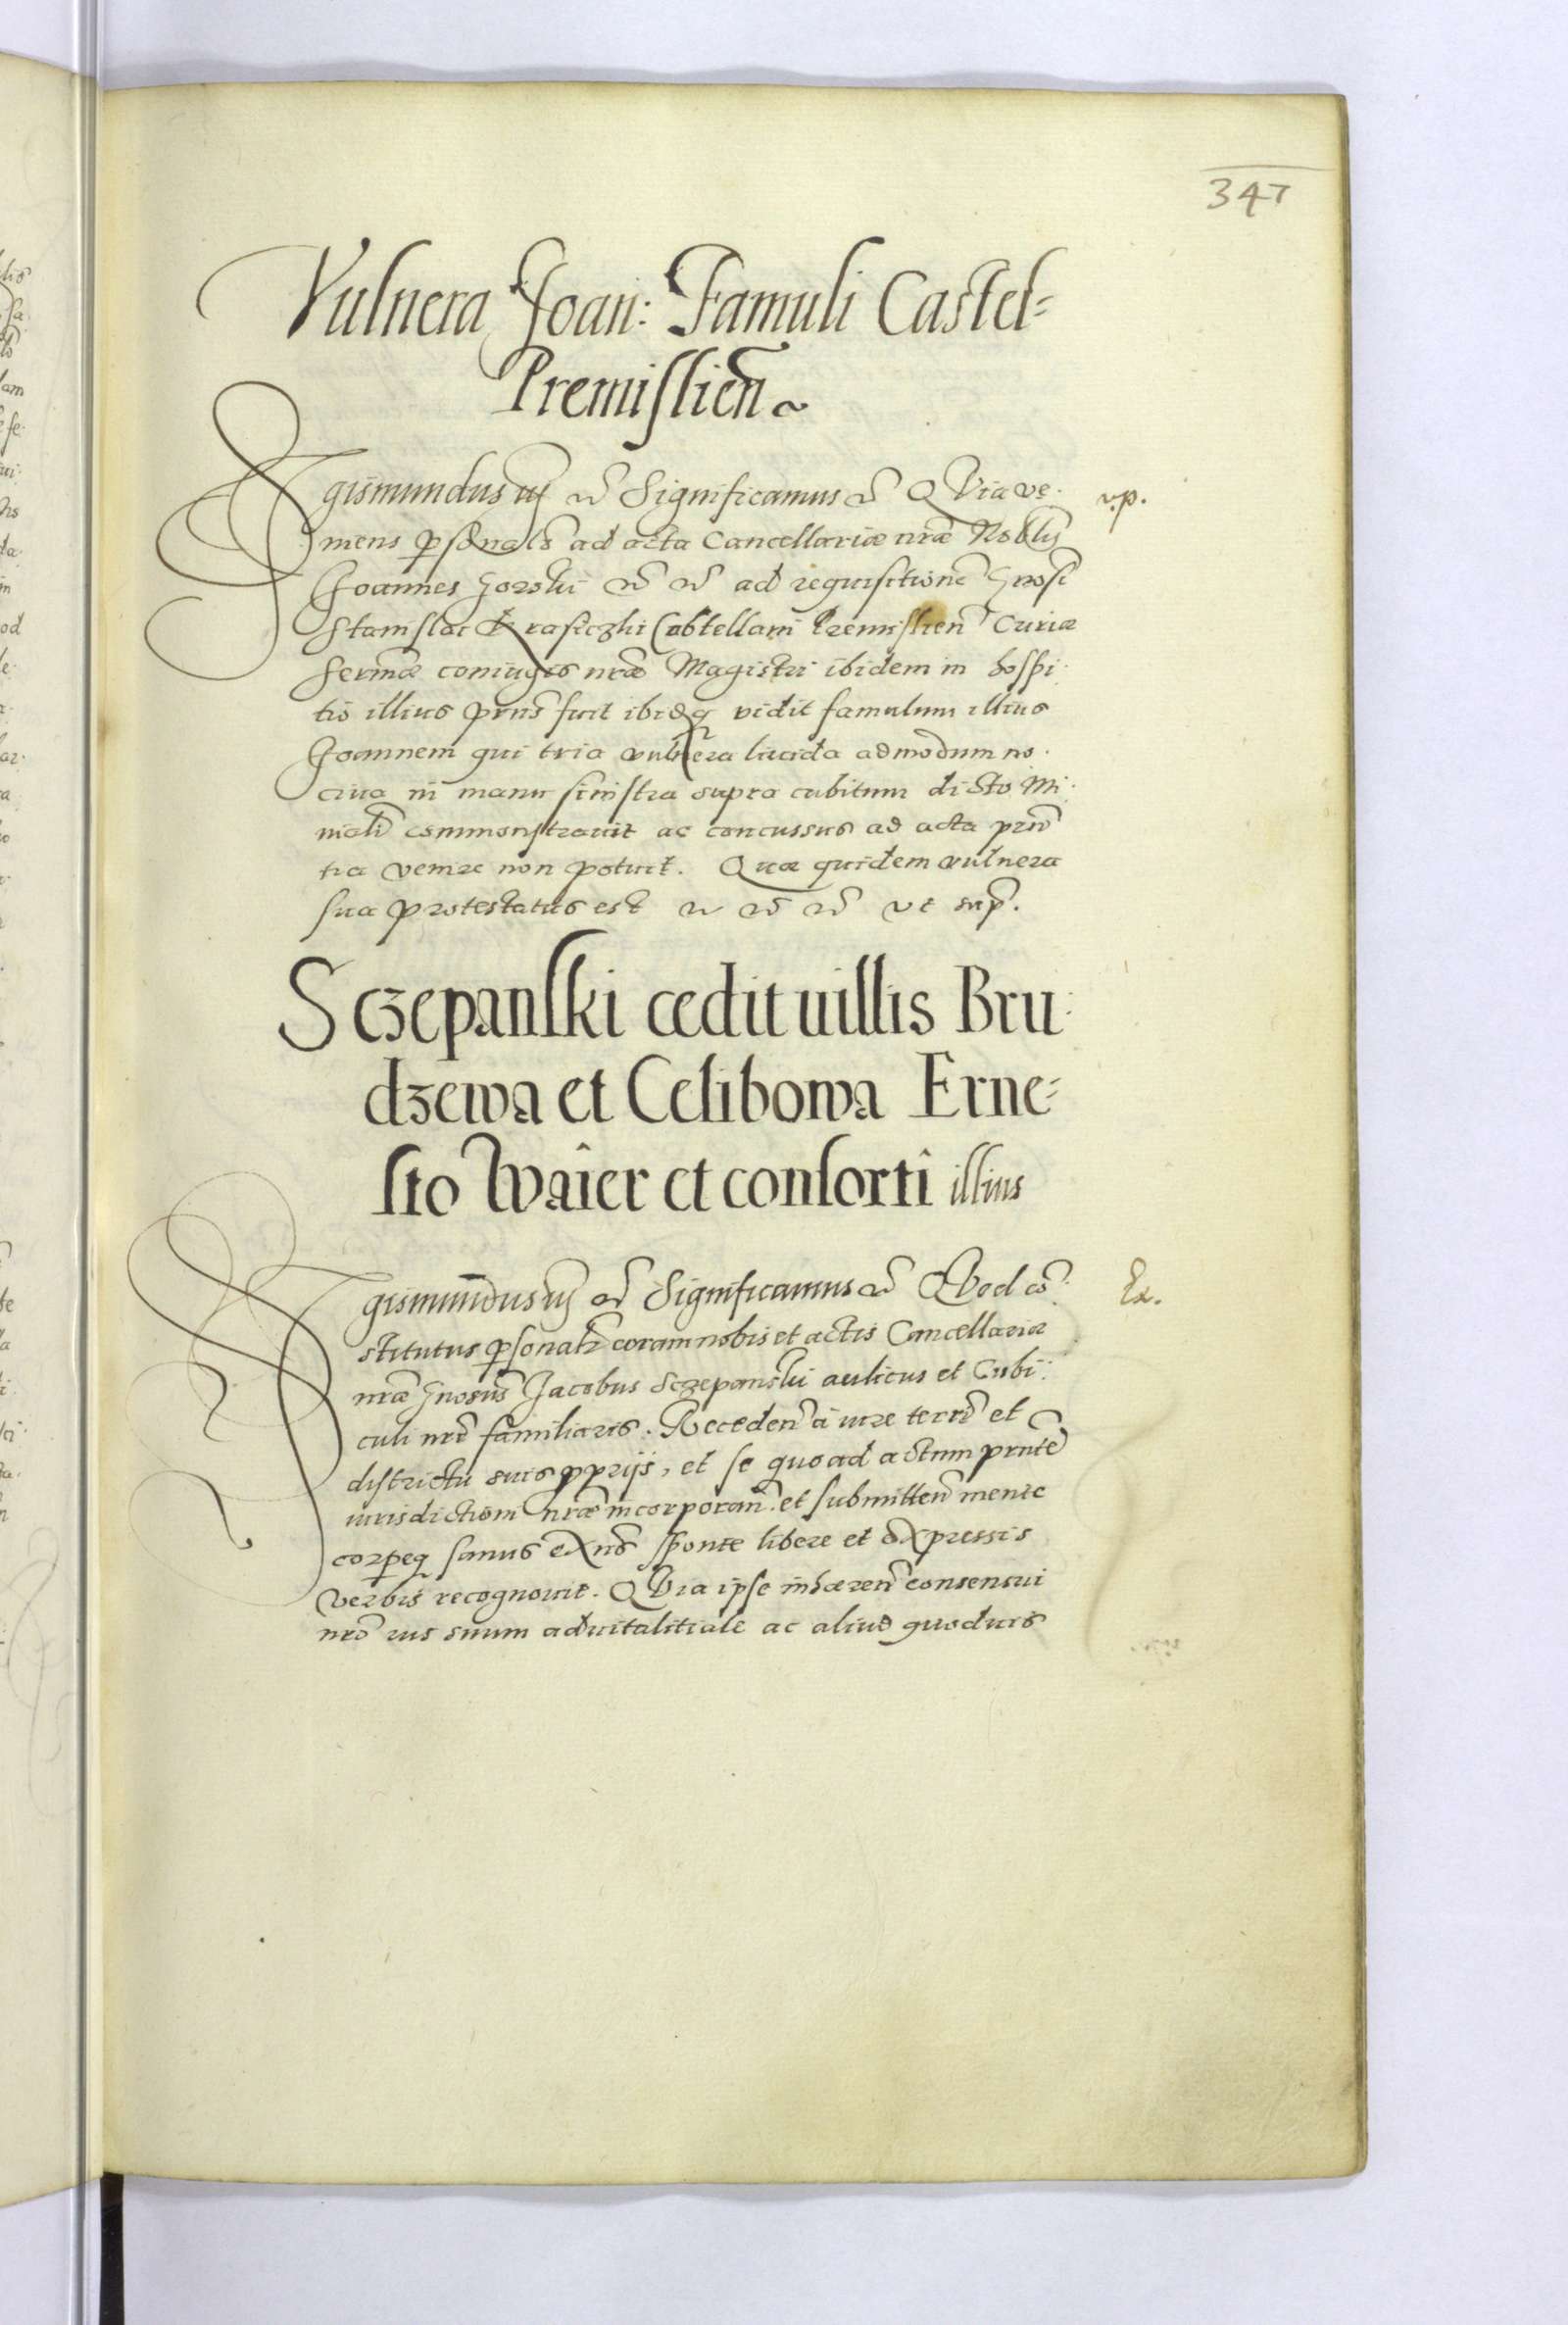 347
Vulnera Joan: Famuli Castel=
Premislien̄
Sigismundus iij etc̄ Significamus etc̄ QVia ve.
v.p.
niens personalr̄ ad acta Cancellariæ nr̄æ Nobilis
Joannes Gorski etc̄ etc̄ ad requisitionē Gnosi
Stanislai Krasiczki Castellani Premislien̄ Curiæ
Serm̄æ coniugis nr̄æ Magistri ibidem in hospi.
tio illius pn̄s fuit ibidēq vidit famulum illius
Joannem qui tria vulnera liuida admodum no.
ciua in manu sinistra supra cubitum dicto Mi.
niali commonstrauit ac concussus ad acta prn̄
tia venire non potuit. Quæ quidem vulnera
sua protestatus est etc̄ etc̄ etc̄ vt sup̄.
Sczepanski cedit uillis Bru-
dzewa et Celibowa Erne=
sto Waier et consorti illius
Sigismundus iij etc̄ Significamus etc̄ QVod cō.
Ex.
stitutus personalr̄ coram nobis et actis Cancellariæ
nr̄æ Gnosus Jacobus Sczepanski aulicus et Cubi.
culi nr̄i familiaris. Receden̄ a iure terr̄i et
districtu suis pprijs, et se quo ad actum prn̄tē
iurisdictioni nr̄æ incorporan̄. et submitten̄ mente
corpeq sanus exn̄s sponte libere et expressis
verbis recognouit. QVia ipse inhæren̄ consensui
nr̄o ius suum aduitalitiale ac aliud quoduis